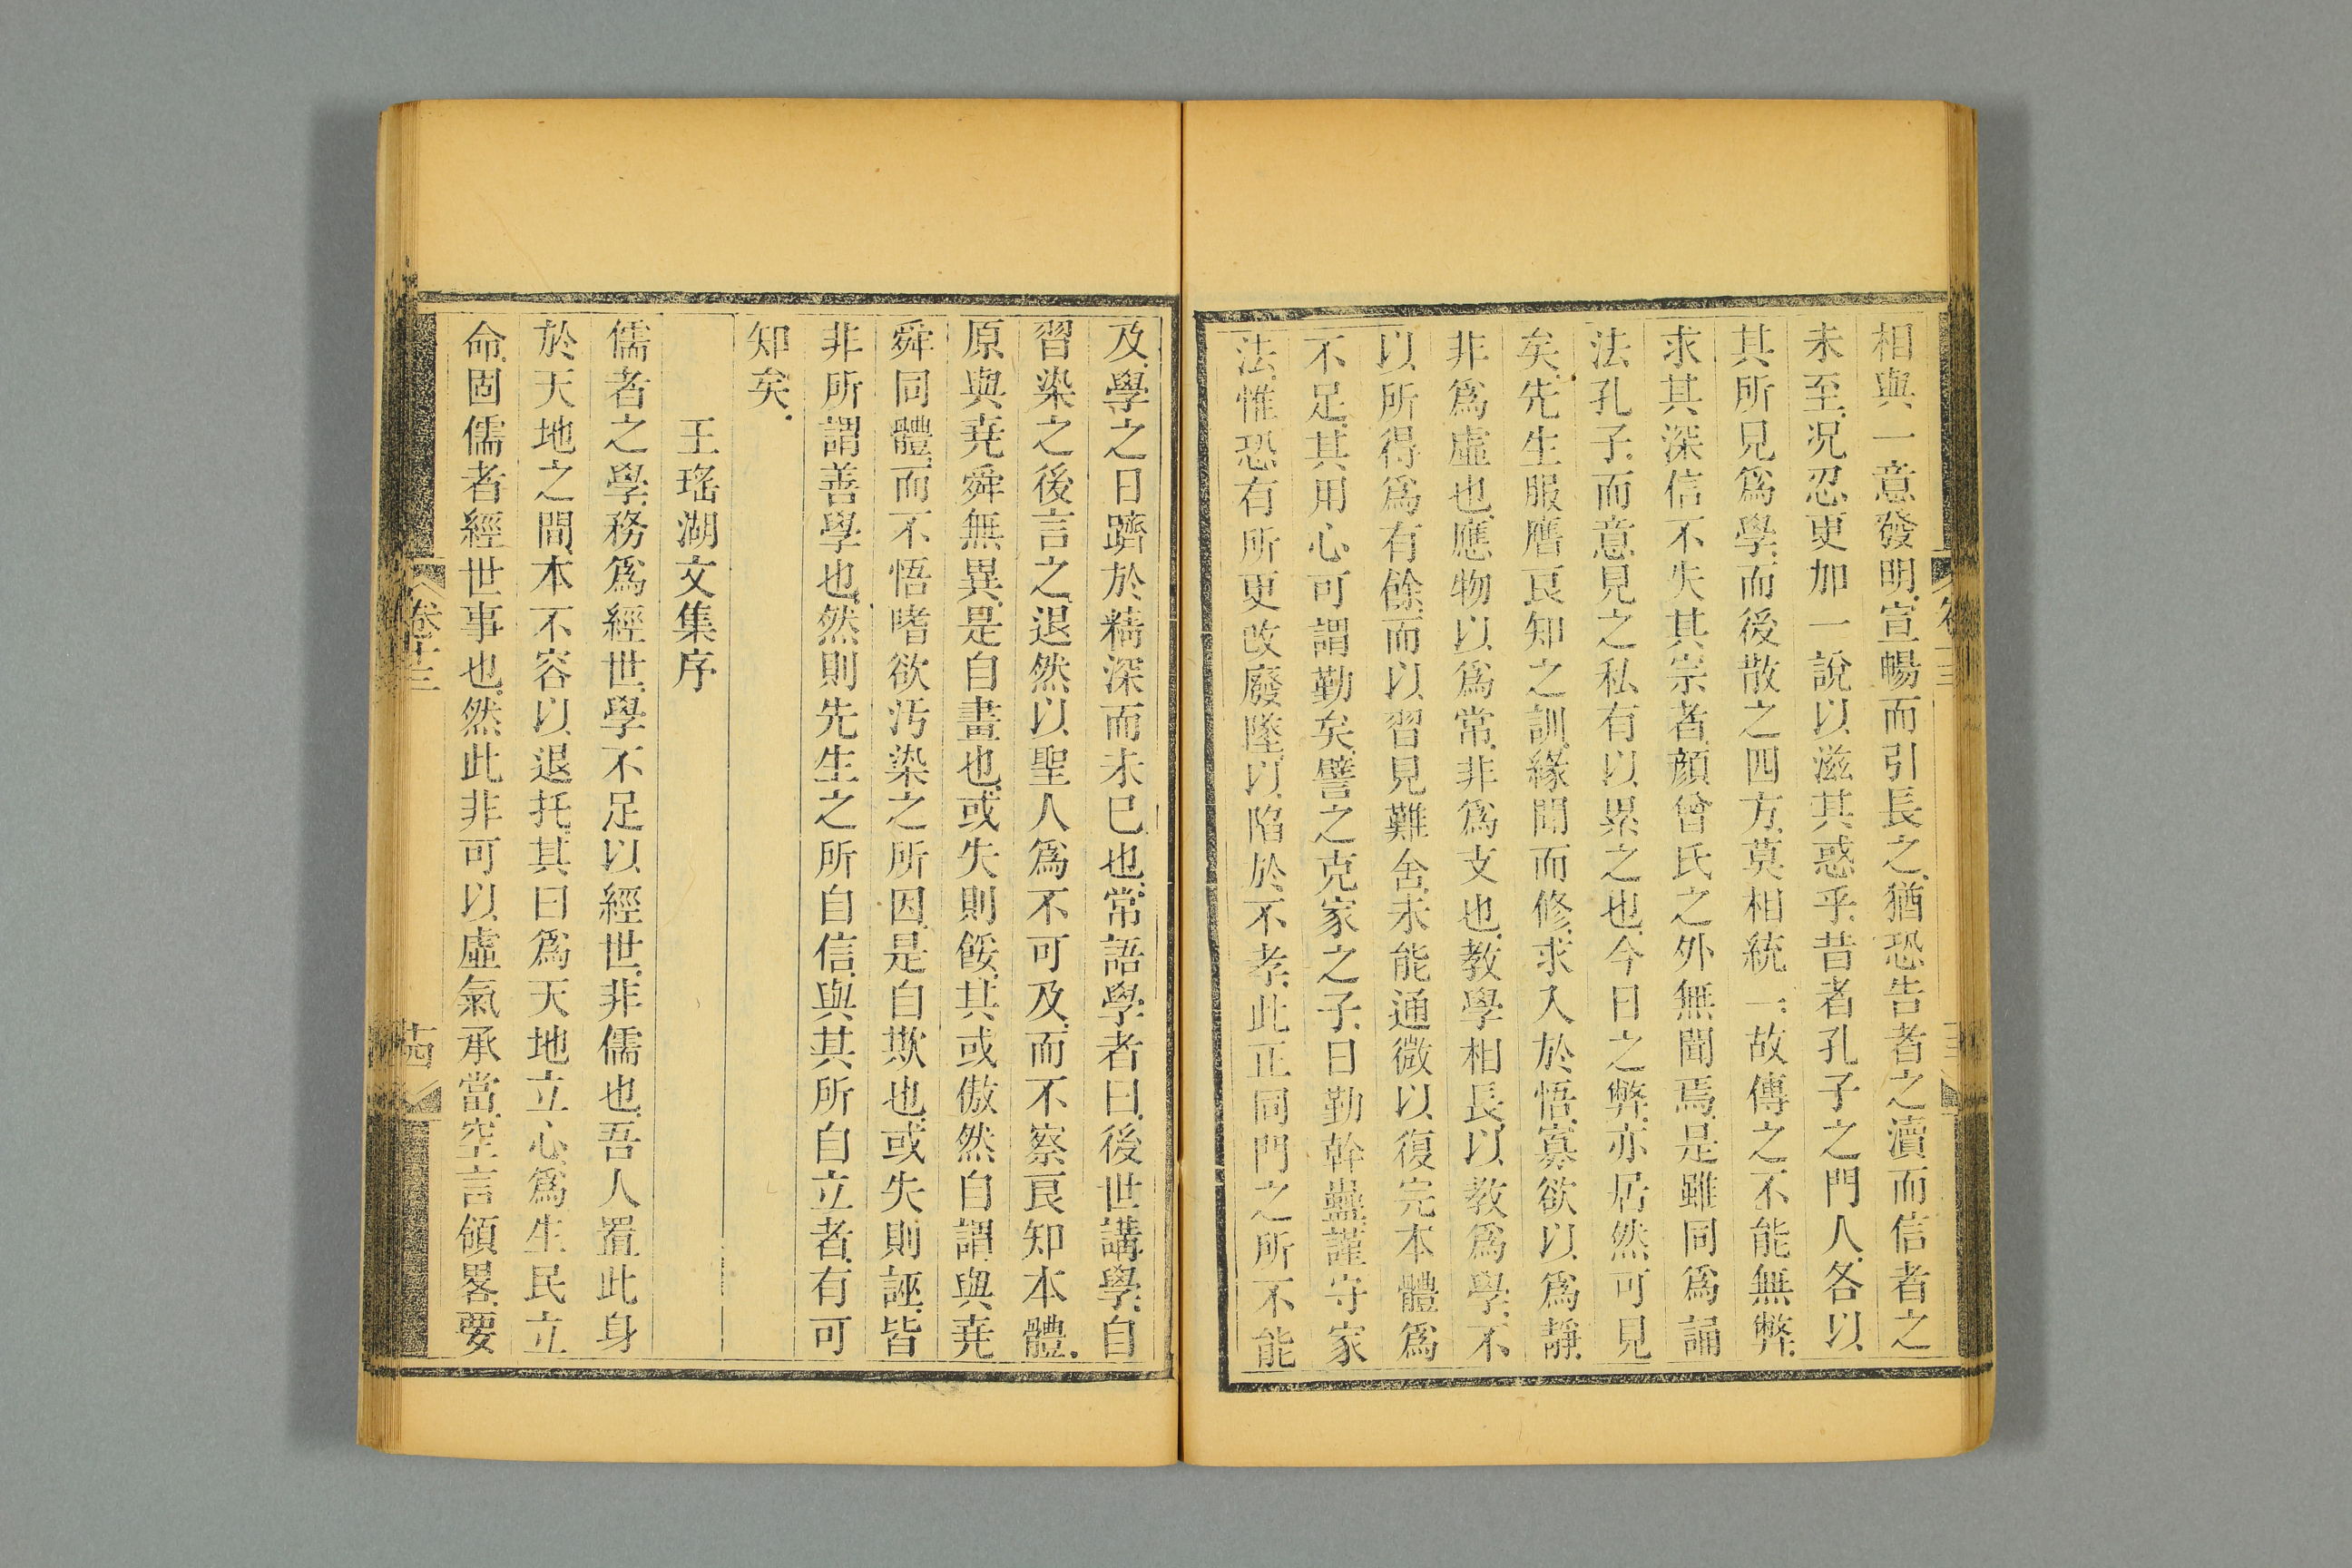 相與一意發明宣暢而引長之猶恐告者之瀆而信者之
未至況忍更加一說以滋其惑乎昔者孔子之門人各以
其所見爲學而後散之四方莫相統一故傳之不能無弊
求其深信不失其宗者顏曾氏之外無聞焉是雖同爲誦
法孔子而意見之私有以累之也今日之弊亦居然可見
矣先生服膺良知之訓緣聞而修求入於悟寡欲以爲靜
非爲虛也應物以爲常非爲支也教學相長以教爲學不
以所得爲有餘而以習見難舍未能通微以復完本體爲
不足其用心可謂勤矣譬之克家之子日勤幹蠱謹守家
法惟恐有所更改廢墜以陷於不孝此正同門之所不能
及學之日躋於精深而未已也常語學者曰後世講學自
習染之後言之退然以聖人爲不可及而不察良知本體
原與堯舜無異是自畫也或失則餒其或傲然自謂與堯
舜同體而不悟嗜欲汚染之所因是自欺也或失則誣皆
非所謂善學也然則先生之所自信與其所自立者有可
知矣
王瑤湖文集序
儒者之學務爲經世學不足以經世非儒也吾人置此身
於天地之間本不容以退托其曰爲天地立心爲生民立
命固儒者經世事也然此非可以虛氣承當空言領畧要
卷十三
十四